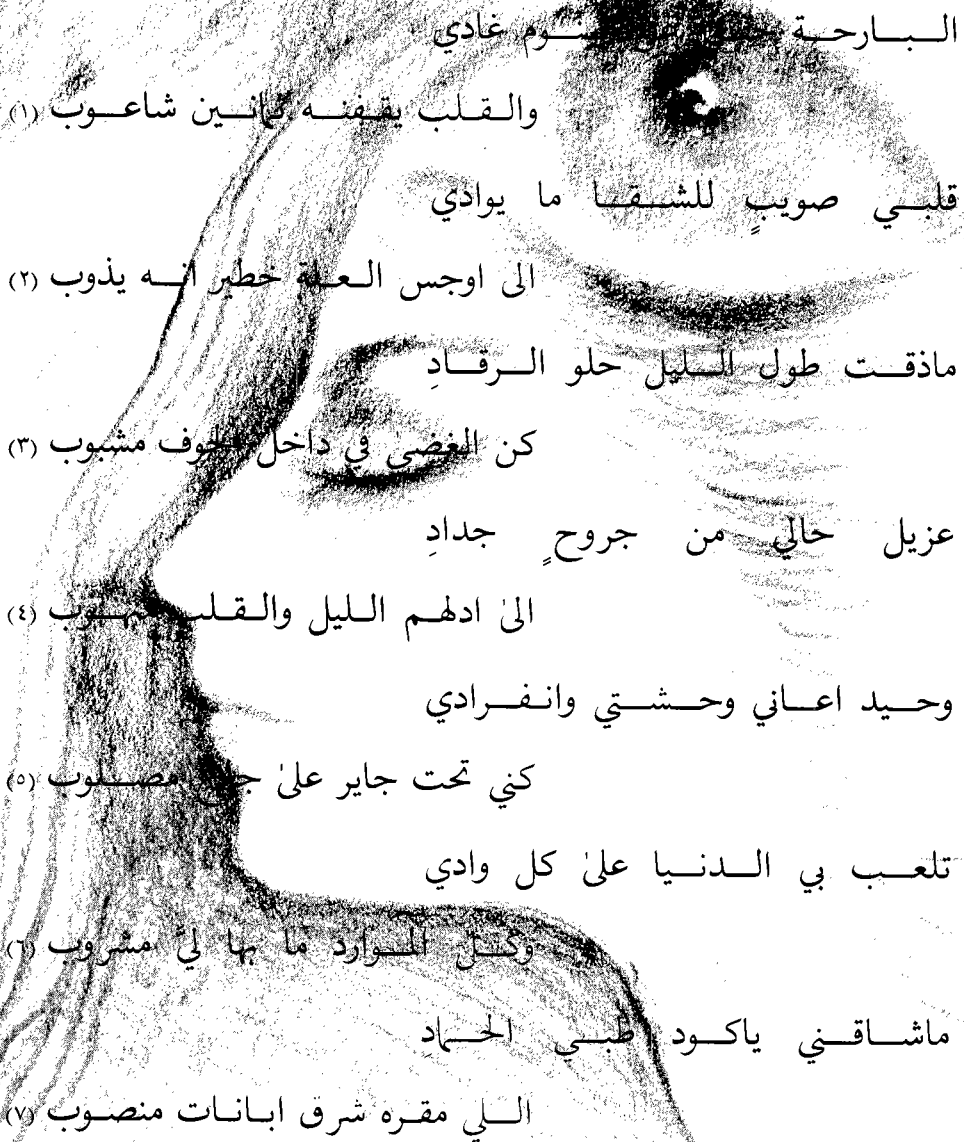 البارحة غادي
والقلب يقفنه ثمانين شاعوب (١)
قلبي صويبٍ للشقا ما يوادي
الى اوجس العلة خطير انه يذوب (٢)
ماذقت طول الليل حلو الرقادِ
كن الغضى في داخل الجوف مشبوب (٣)
عزيل حالي من جروحٍ جدادِ
الىٰ ادلهم الليل والقلب (٤)
وحيد اعاني وحشتي وانفرادي
كني تحت جاير علىٰ مصلوب (٥)
تلعب بي الدنيا علىٰ كل وادي
وكل الموارد ما بها ليّ مشروب (٦)
ماشاقني ياكود ظبي الحمادِ
اللي مقره شرق ابانات منصوب (٧)